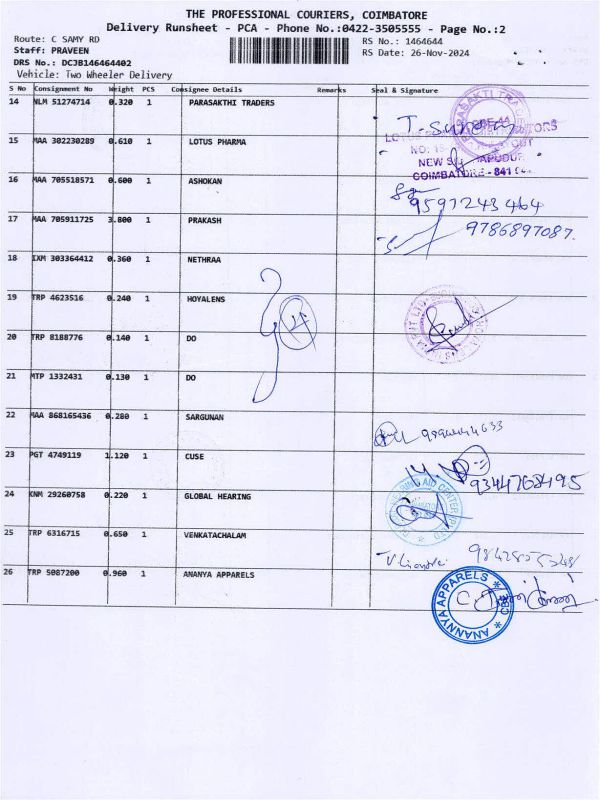 THE PROFESSIONAL COURIERS, COIMBATORE
Delivery Runsheet - PCA - Phone No.:0422-3505555 - Page No.:2
Route: C SAMY RD
RS No.: 1464644
Staff: PRAVEEN
RS Date: 26-Nov-2024
DRS No.: DCJB146464402
Vehicle: Two Wheeler Delivery
S No Consignment No Weight PCS Consignee Details Remarks Seal & Signature
14 NLM 51274714 0.320 1 PARASAKTHI TRADERS
15 MAA 302230289 0.610 1 LOTUS PHARMA
NEW SI
COIMBATORE - 641
16 MAA 705518571 0.600 1 ASHOKAN
9597243464
17 MAA 705911725 3.800 1 PRAKASH
9786897087.
18 IXM 303364412 0.360 1 NETHRAA
19 TRP 4623516 0.240 1 HOYALENS
20 TRP 8188776 0.140 1 DO
21 MTP 1332431 0.130 1 DO
22 MAA 868165436 0.280 1 SARGUNAN
23 PGT 4749119 1.120 1 CUSE
9344768495
24 KNM 29260758 0.220 1 GLOBAL HEARING
25 TRP 6316715 0.650 1 VENKATACHALAM
26 TRP 5087200 0.960 1 ANANYA APPARELS
ANANNYA APPARELS * CBE *